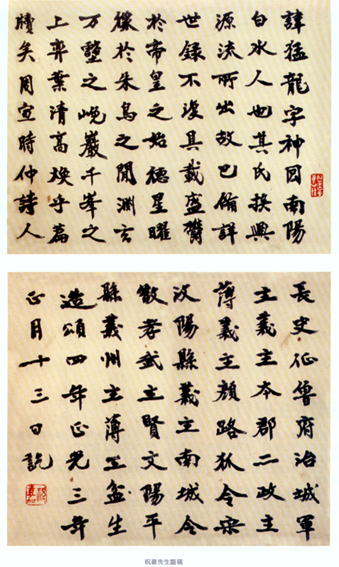 諱猛龍字神囧南陽
白水人也其氏族興
源流所出故已備詳
世錄不復具載盛欝
於帝皇之始德星曜
像於朱鳥之間淵玄
万壑之峴巖千峯之
上弈葉清高煥乎篇
牘矣周宣時仲詩人
長史征魯府治城軍
主義主本郡二政主
薄義主顏路狐令宋
汶陽縣義主南城令
散孝武主賢文陽平
縣義州主薄王盆生
造頌四年正光三年
正月十三日訖
祝嘉先生稿